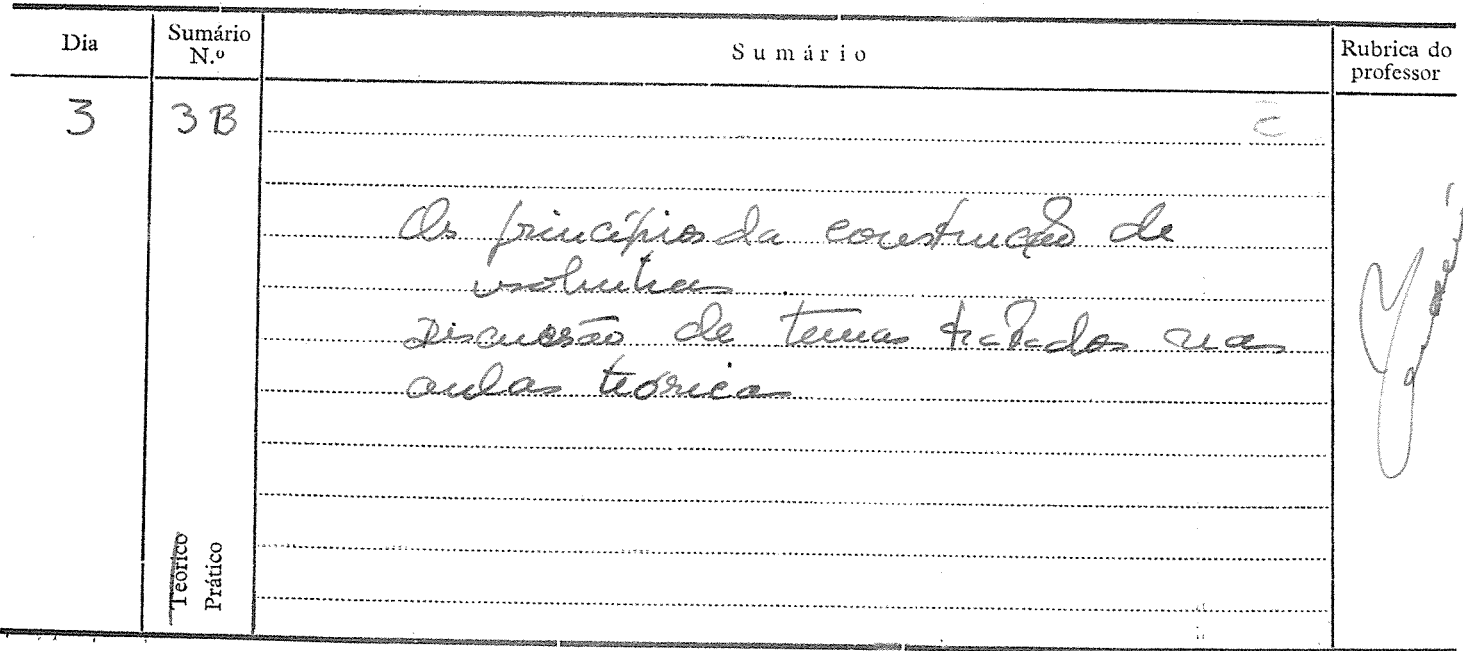 Dia
Sumário N.º
Sumário
Rubrica do professor
3
3 B
Os princípios da construção de
Discussão de temas tratados nas
aulas teóricas
Teórico
Prático